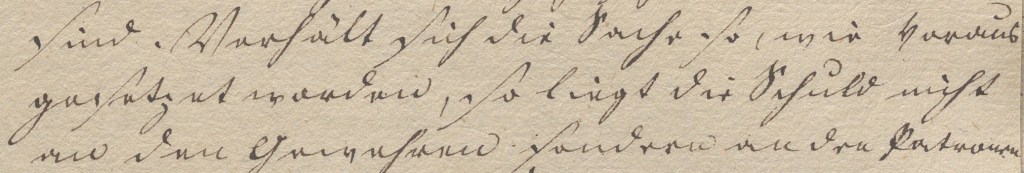 sind. Verhält sich die Sache so, wie voraus
gesetzet worden, so liegt die Schuld nicht
an den Gewehren sondern an den Patronen